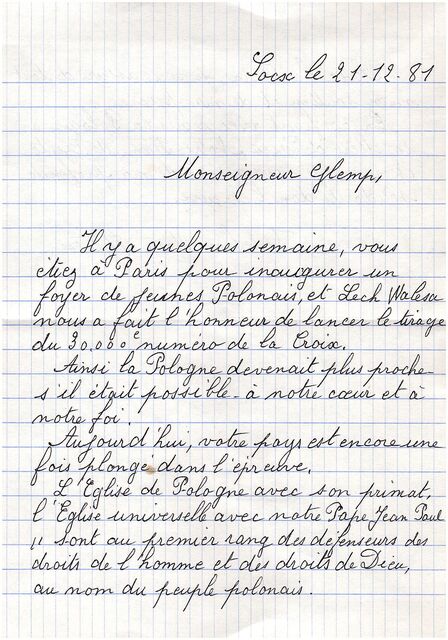 Socx le 21-12-81
Monseigneur Glemp,
Il y a quelques semaine, vous
étiez à Paris pour inaugurer un
foyer de jeunes Polonais, et Lech Walesa
nous a fait l'honneur de lancer le tirage
du 30.000e numéro de la Croix.
Ainsi la Pologne devenait plus proche-
s'il était possible - à notre cœur et à
notre foi.
Aujourd'hui, votre pays est encore une
fois plongé dans l'épreuve.
L'Eglise de Pologne avec son primat,
l'Eglise universelle avec notre Pape Jean Paul
II sont au premier rang des défenseurs des
droits de l'homme et des droits de Dieu,
au nom du peuple polonais.